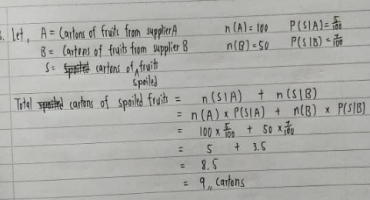 3. Let, A = Cartons of fruits from supplier A n(A) = 100 P(S|A) = 5/100
B = Cartons of fruits from supplier B n(B) = 50 P(S|B) = 7/100
S = cartons of spoiled fruits
Total cartons of spoiled fruits = n(S|A) + n(S|B)
= n(A) × P(S|A) + n(B) × P(S|B)
= 100 × 5/100 + 50 × 7/100
= 5 + 3.5
= 8.5
= 9,, Cartons